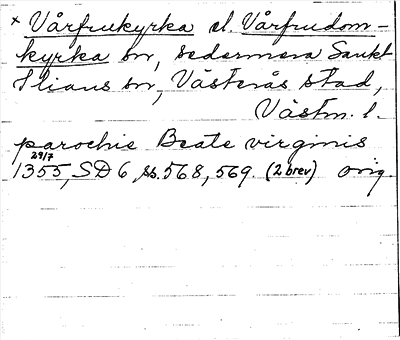 × Vårfrukyrka el. Vårfrudom-
kyrka sn, sedermera Sankt
Ilians sn, Västerås stad,
Västm. l.
parochie Beate virginis
29/7
1355, SD 6, ss. 568, 569. (2 brev) orig.